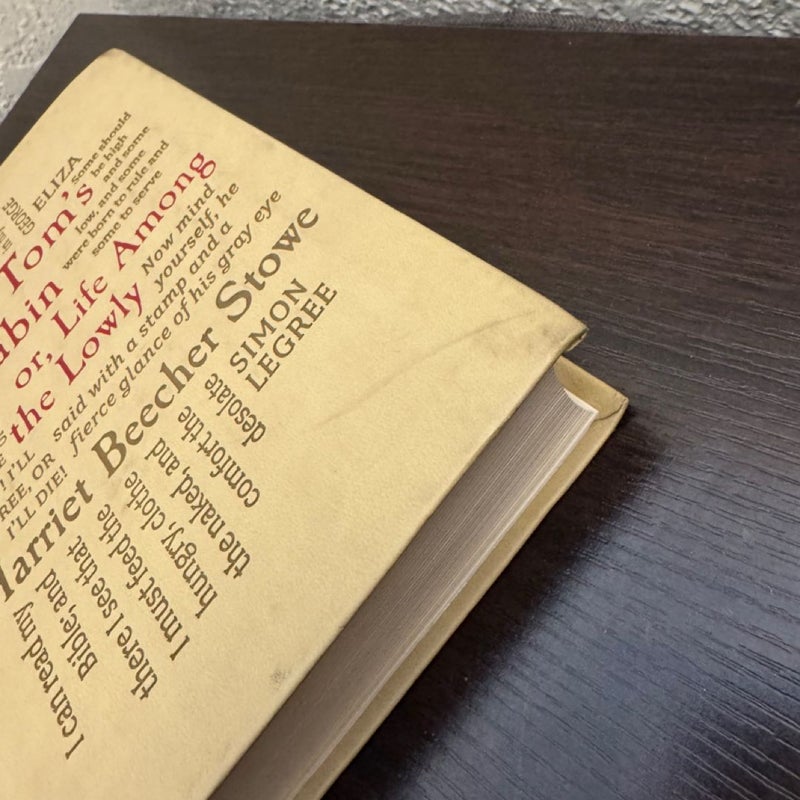 GEORGE
ELIZA
Some should
be high
low, and some
and some
were born to rule and
some to serve
Tom's
or, Life Among
the Lowly
Now mind
yourself, he
said with a stamp and a
fierce glance of his gray eye
I'LL
OR
I'LL DIE!
Harriet Beecher Stowe
SIMON
LEGREE
I can read my
Bible, and
there I see that
I must feed the
hungry, clothe
the naked, and
comfort the
desolate